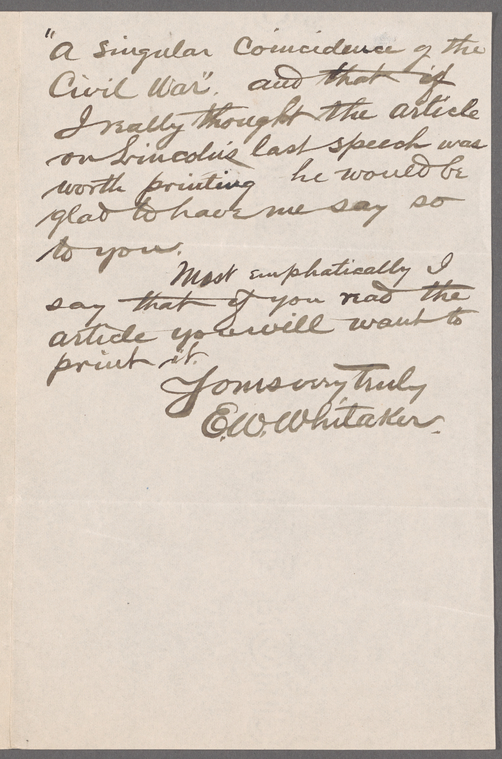 "A Singular Coincidence of the
Civil War". and that if
I really thought the article
on Lincoln's last speech was
worth printing he would be
glad to have me say so
to you.
Most emphatically I
say that if you read the
article you will want to
print it.
Yours very truly
E.W. Whitaker.